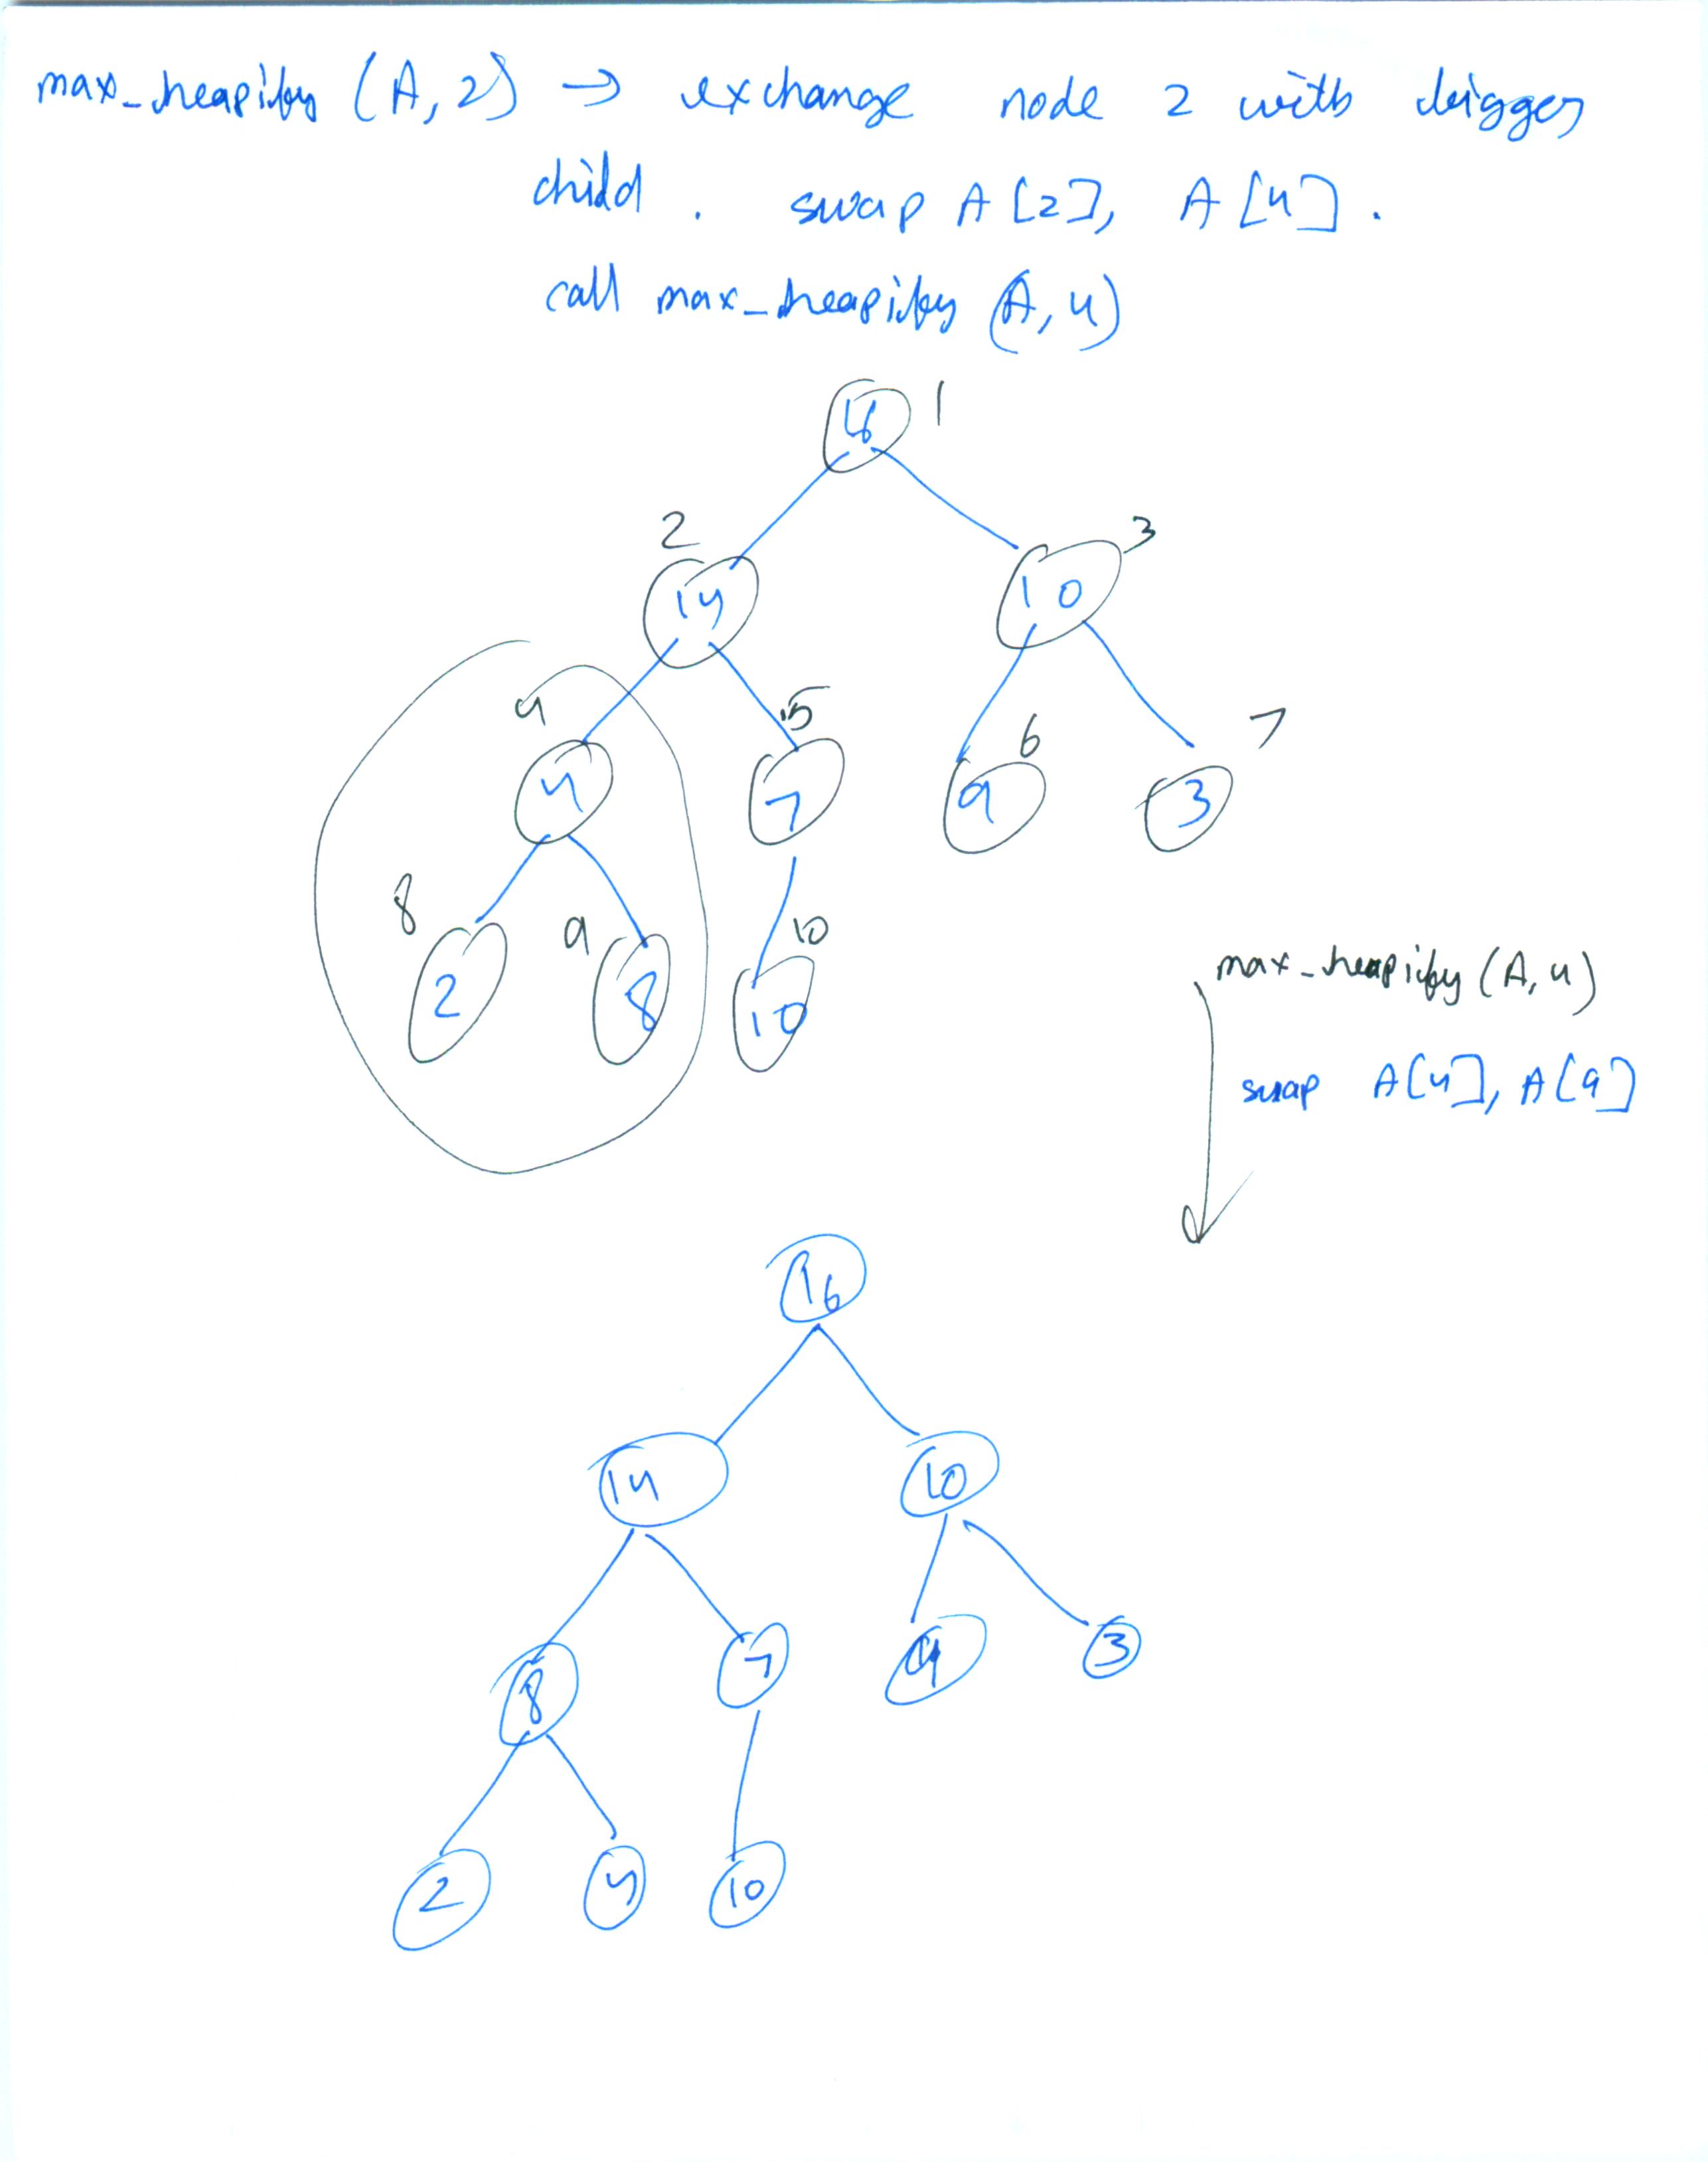 max_heapify (A, 2) → exchange node 2 with bigger
child . swap A[2], A[4].
call max_heapify (A, 4)
1
2
14
3
10
4
4
5
7
6
9
7
3
8
2
9
8
10
10
max_heapify (A, 4)
swap A[4], A[9]
16
14 10
8 7 3
2 4 10